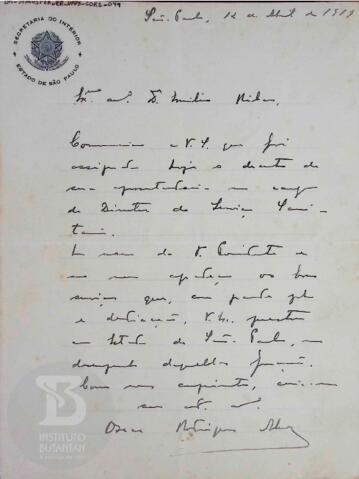 SECRETARIA DO INTERIOR
ESTADO DE SÃO PAULO
São Paulo, 12 de Abril de 1919
Sr. Dr. Emilio Ribas,
Communico a V. S. que foi
assignado hoje o decreto de
sua aposentadoria no cargo
de Director do Serviço Sani-
tario.
Em nome do V. Presidente e
no meu agradeço os bons
serviços que, com
e dedicação, V. S. prestou
ao Estado de São Paulo, no
desempenho daquellas funcções.
Com meus cumprimentos,
Oscar Rodrigues Alves
INSTITUTO
BUTANTAN